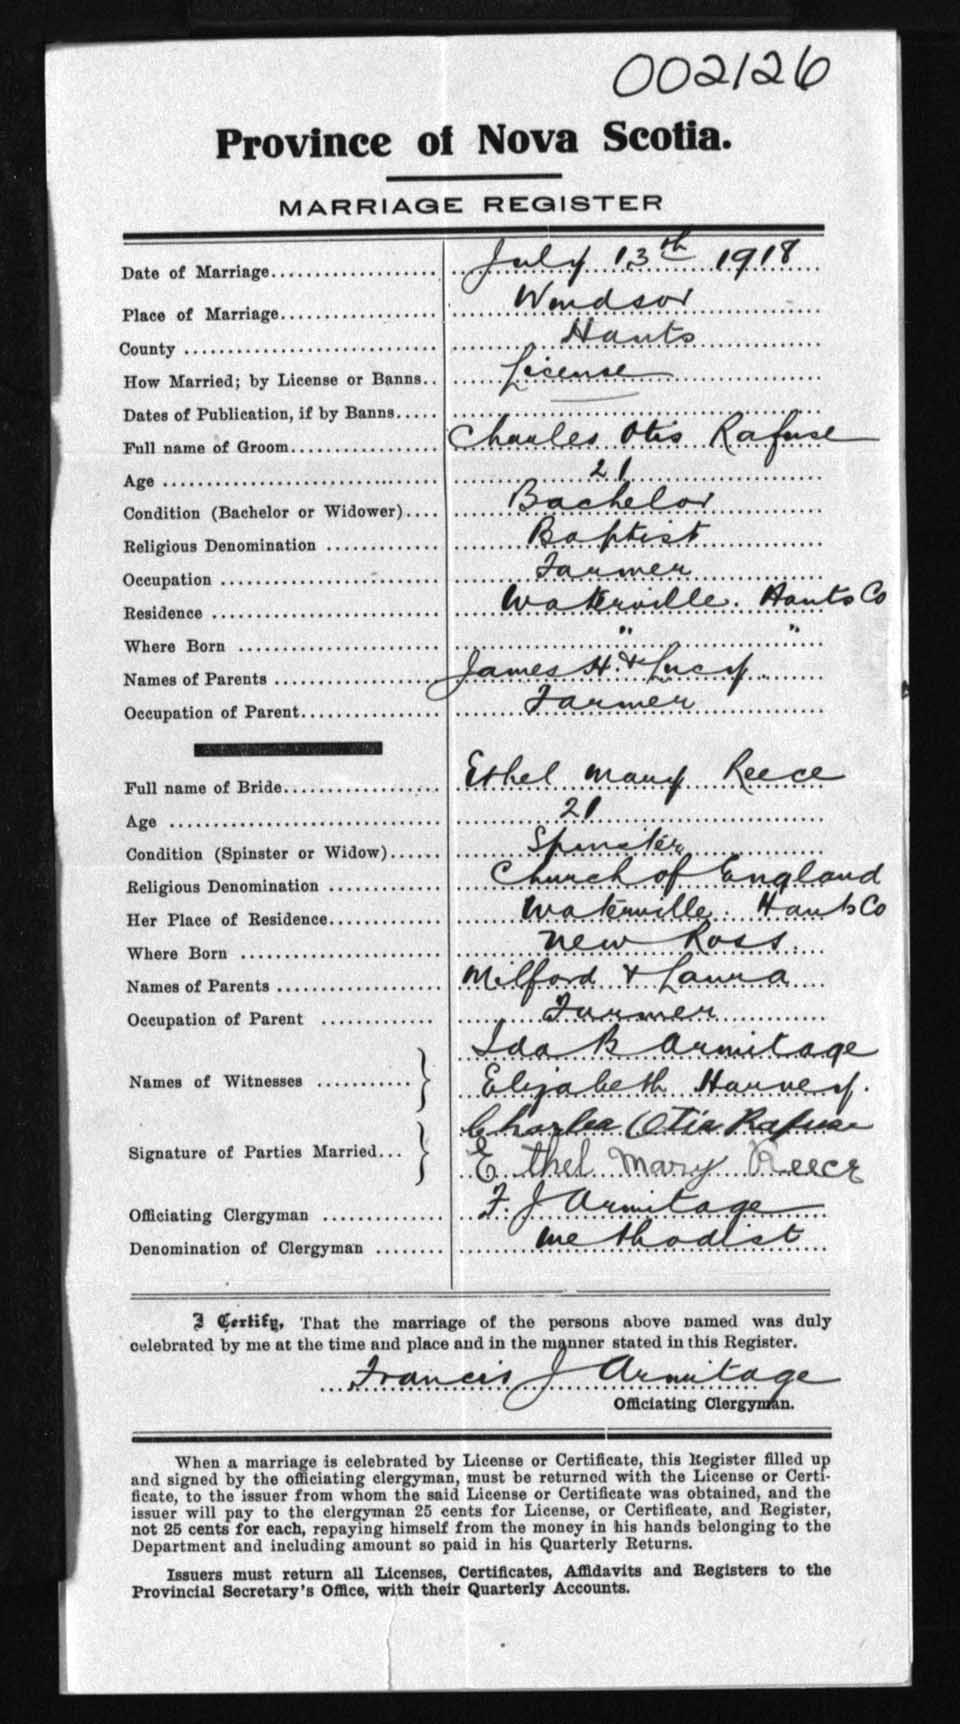 002126
Province of Nova Scotia.
MARRIAGE REGISTER
Date of Marriage.................... July 13th 1918
Place of Marriage.................. Windsor
County ............................ Hants
How Married; by License or Banns.. License
Dates of Publication, if by Banns.....
Full name of Groom................. Charles Otis Rafuse
Age ............................... 21
Condition (Bachelor or Widower).... Bachelor
Religious Denomination ............ Baptist
Occupation ........................ Farmer
Residence ......................... Waterville. Hants Co
Where Born ........................ " "
Names of Parents .................. James H. & Lucy
Occupation of Parent............... Farmer
Full name of Bride................. Ethel Mary Reece
Age ............................... 21
Condition (Spinster or Widow)...... Spinster
Religious Denomination ............ Church of England
Her Place of Residence............. Waterville. Hants Co
Where Born ........................ New Ross.
Names of Parents .................. Milford & Laura
Occupation of Parent .............. Farmer
Ida B Armitage
Names of Witnesses ........... } Elizabeth Harvey.
Charles Otis Rafuse
Signature of Parties Married... } Ethel Mary Reece
Officiating Clergyman .............. F. J Armitage
Denomination of Clergyman ........ Methodist
I Certify, That the marriage of the persons above named was duly
celebrated by me at the time and place and in the manner stated in this Register.
Francis J Armitage
Officiating Clergyman.
When a marriage is celebrated by License or Certificate, this Register filled up
and signed by the officiating clergyman, must be returned with the License or Certi-
ficate, to the issuer from whom the said License or Certificate was obtained, and the
issuer will pay to the clergyman 25 cents for License, or Certificate, and Register,
not 25 cents for each, repaying himself from the money in his hands belonging to the
Department and including amount so paid in his Quarterly Returns.
Issuers must return all Licenses, Certificates, Affidavits and Registers to the
Provincial Secretary's Office, with their Quarterly Accounts.